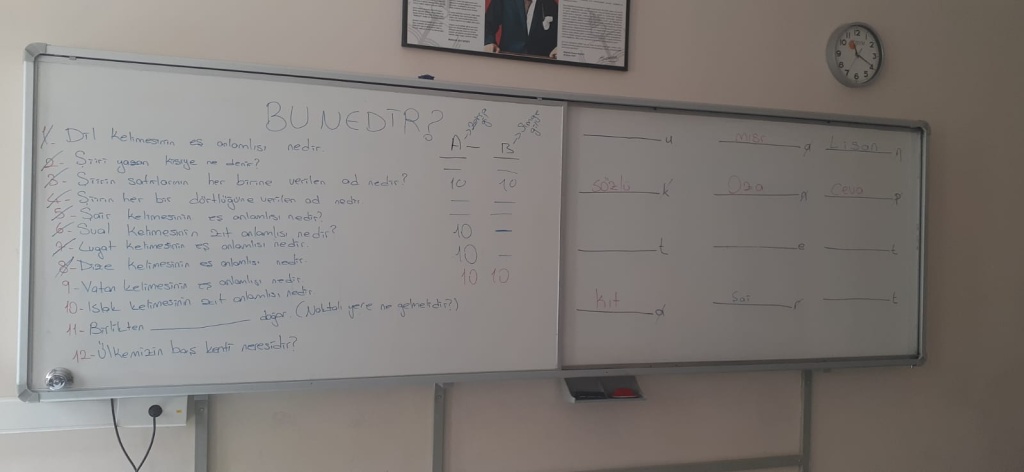 BU NEDİR?
1- Dil kelimesinin eş anlamlısı nedir.
2- Şiiri yazan kişiye ne denir?
3- Şiirin satırlarının her birine verilen ad nedir?
4- Şiirin her bir dörtlüğüne verilen ad nedir
5- Şair kelimesinin eş anlamlısı nedir?
6- Sual kelimesinin zıt anlamlısı nedir?
7- Lugat kelimesinin eş anlamlısı nedir.
8- Dize kelimesinin eş anlamlısı nedir.
9- Vatan kelimesinin eş anlamlısı nedir
10- Islak kelimesinin zıt anlamlısı nedir
11- Birlikten ________ doğar. (Noktalı yere ne gelmektedir?)
12- Ülkemizin baş kenti neresidir?
A - B
10 10
10 -
10 -
10 10
________u mısr a Lisan n
sözlü k Oza n Ceva p
________t ________e ________t
kıt a şai r ________t